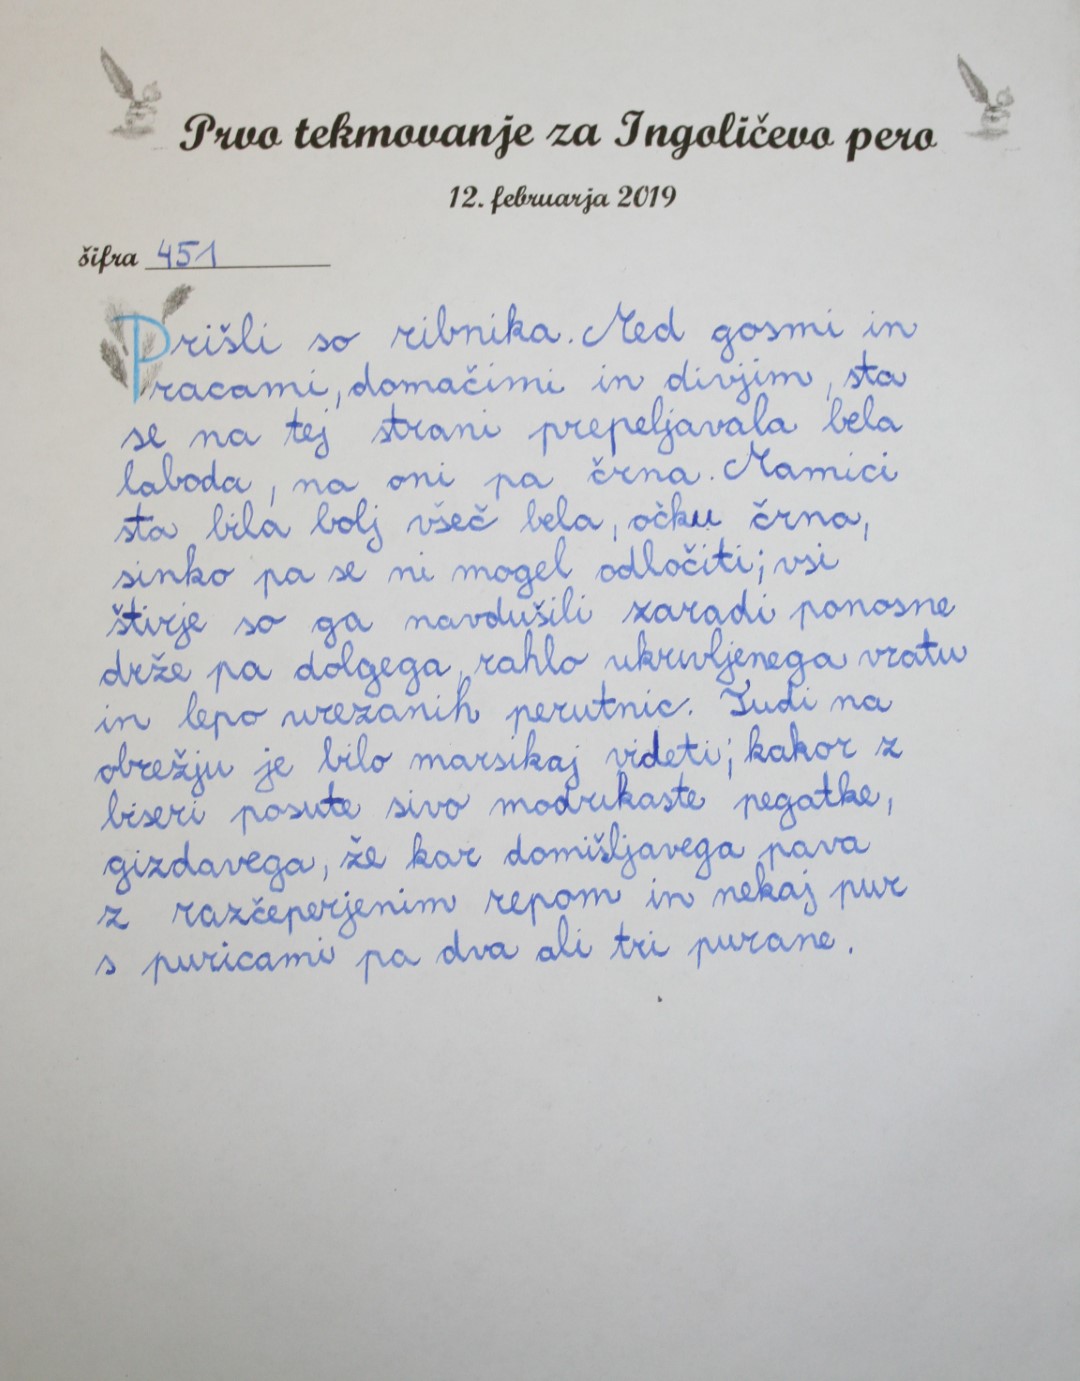 Prvo tekmovanje za Ingoličevo pero
12. februarja 2019
šifra 451
Prišli so ribnika. Med gosmi in
racami, domačimi in divjim, sta
se na tej strani prepeljavala bela
laboda, na oni pa črna. Mamici
sta bila bolj všeč bela, očku črna,
sinko pa se ni mogel odločiti; vsi
štirje so ga navdušili zaradi ponosne
drže pa dolgega, rahlo ukrivljenega vratu
in lepo urezanih perutnic. Tudi na
obrežju je bilo marsikaj videti; kakor z
biseri posute sivo modrikaste pegatke,
gizdavega, že kar domišljavega pava
z razčeperjenim repom in nekaj pur
s puricami pa dva ali tri purane.